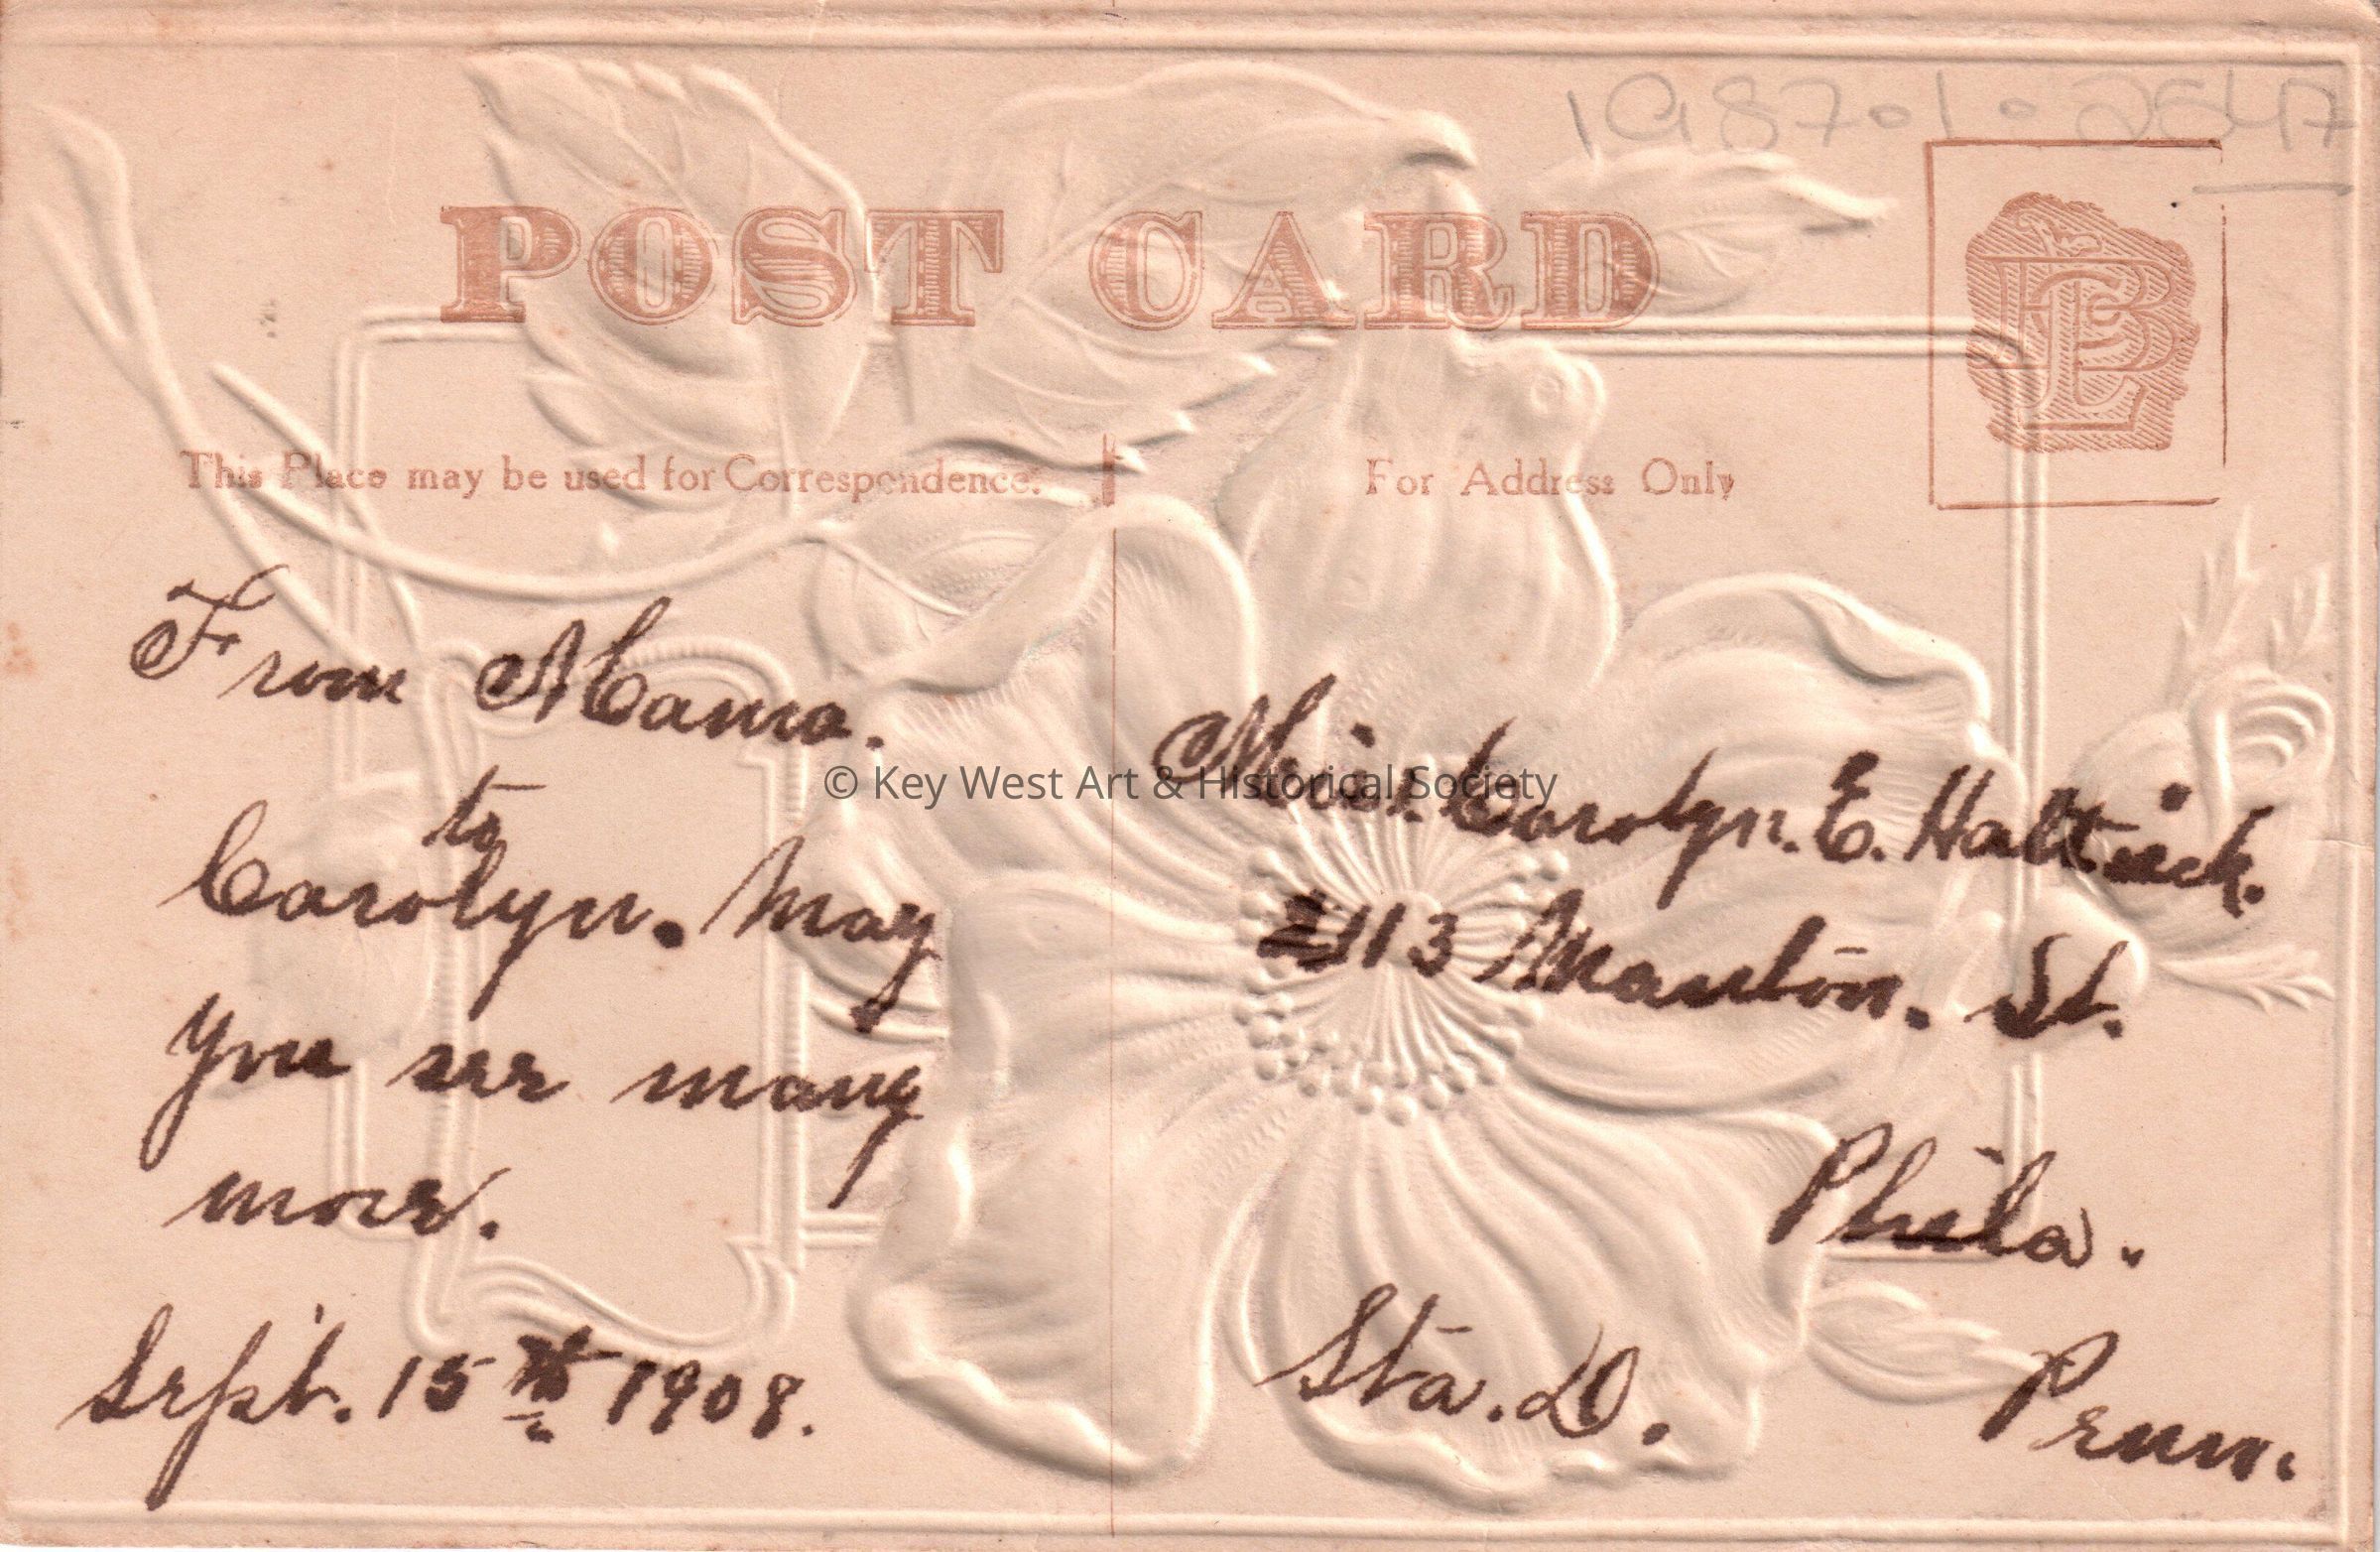 1987.1.254A
POST CARD
This Place may be used for Correspondence.
For Address Only
From Mama.
to
Carolyn. May
you see many
more.
Sept. 15th 1908.
© Key West Art & Historical Society
Miss. Carolyn. E.
2113 Manton. St.
Phila.
Sta. D.
Penn.